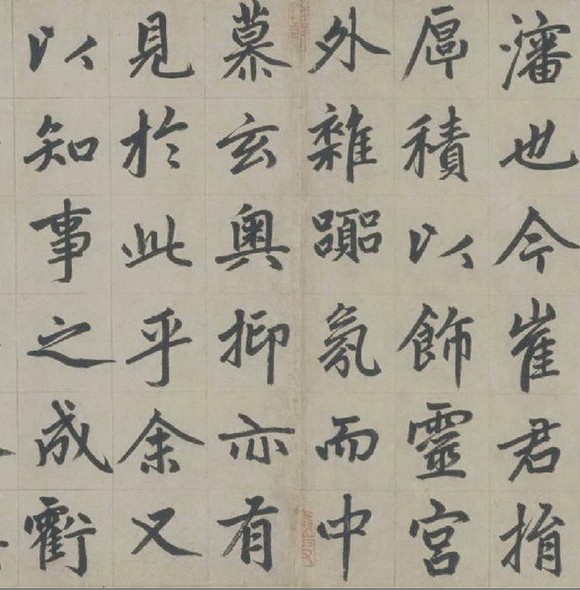 瀋也今崔君捐
厚積以飾靈宮
外雜囂氛而中
慕玄奧抑亦有
見於此乎余又
以知事之成虧